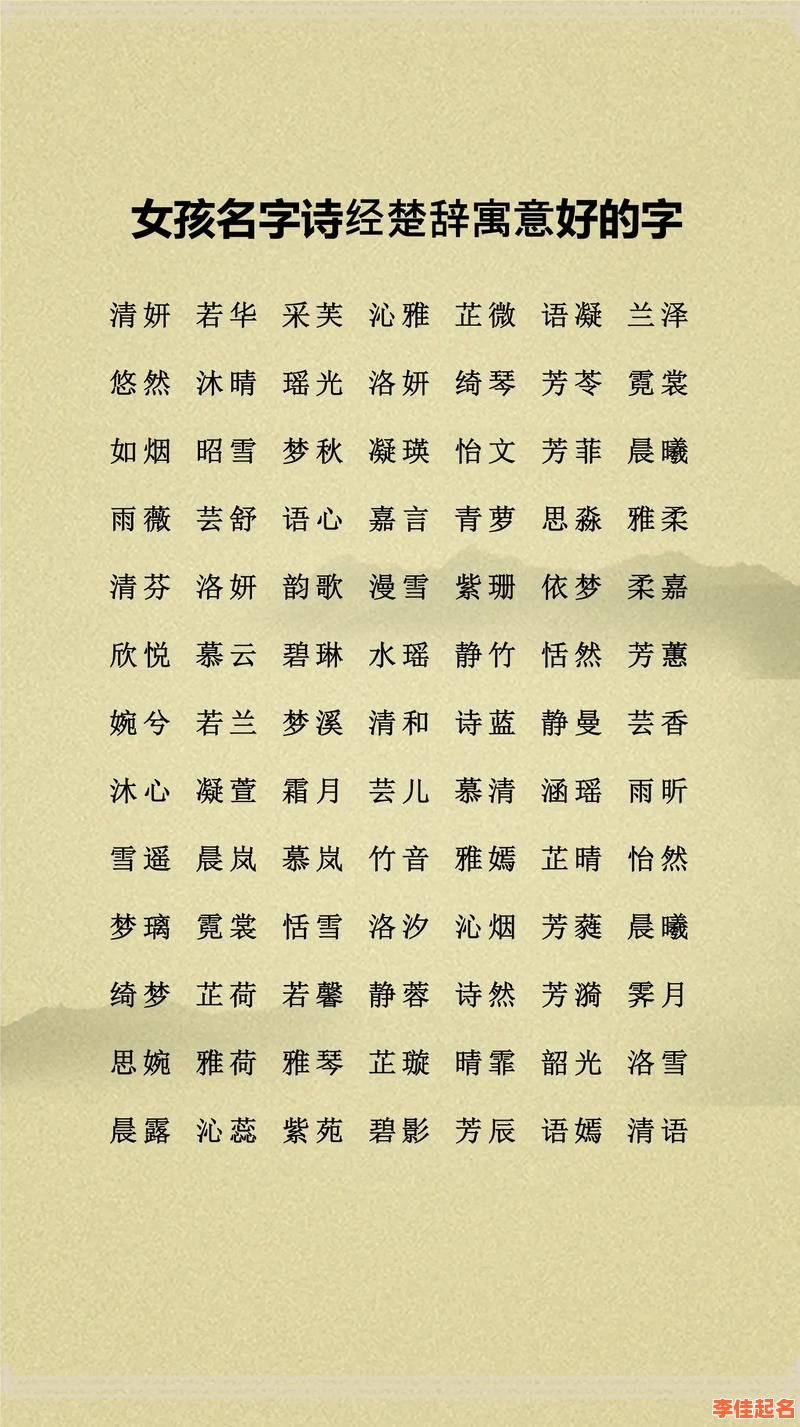 女孩名字诗经楚辞寓意好的字
清妍 若华 采芙 沁雅 芷微 语凝 兰泽
悠然 沐晴 瑶光 洛妍 绮琴 芳苓 霓裳
如烟 昭雪 梦秋 凝瑛 怡文 芳菲 晨曦
雨薇 芸舒 语心 嘉言 青萝 思淼 雅柔
清芬 洛妍 韵歌 漫雪 紫珊 依梦 柔嘉
欣悦 慕云 碧琳 水瑶 静竹 恬然 芳蕙
婉兮 若兰 梦溪 清和 诗蓝 静曼 芸香
沐心 凝萱 霜月 芸儿 慕清 涵瑶 雨昕
雪遥 晨岚 慕岚 竹音 雅嫣 芷晴 怡然
梦璃 霓裳 恬雪 洛汐 沁烟 芳蕤 晨曦
绮梦 芷荷 若馨 静蓉 诗然 芳漪 霁月
思婉 雅荷 雅琴 芷璇 晴霏 韶光 洛雪
晨露 沁蕊 紫苑 碧影 芳辰 语嫣 清语
李佳起名